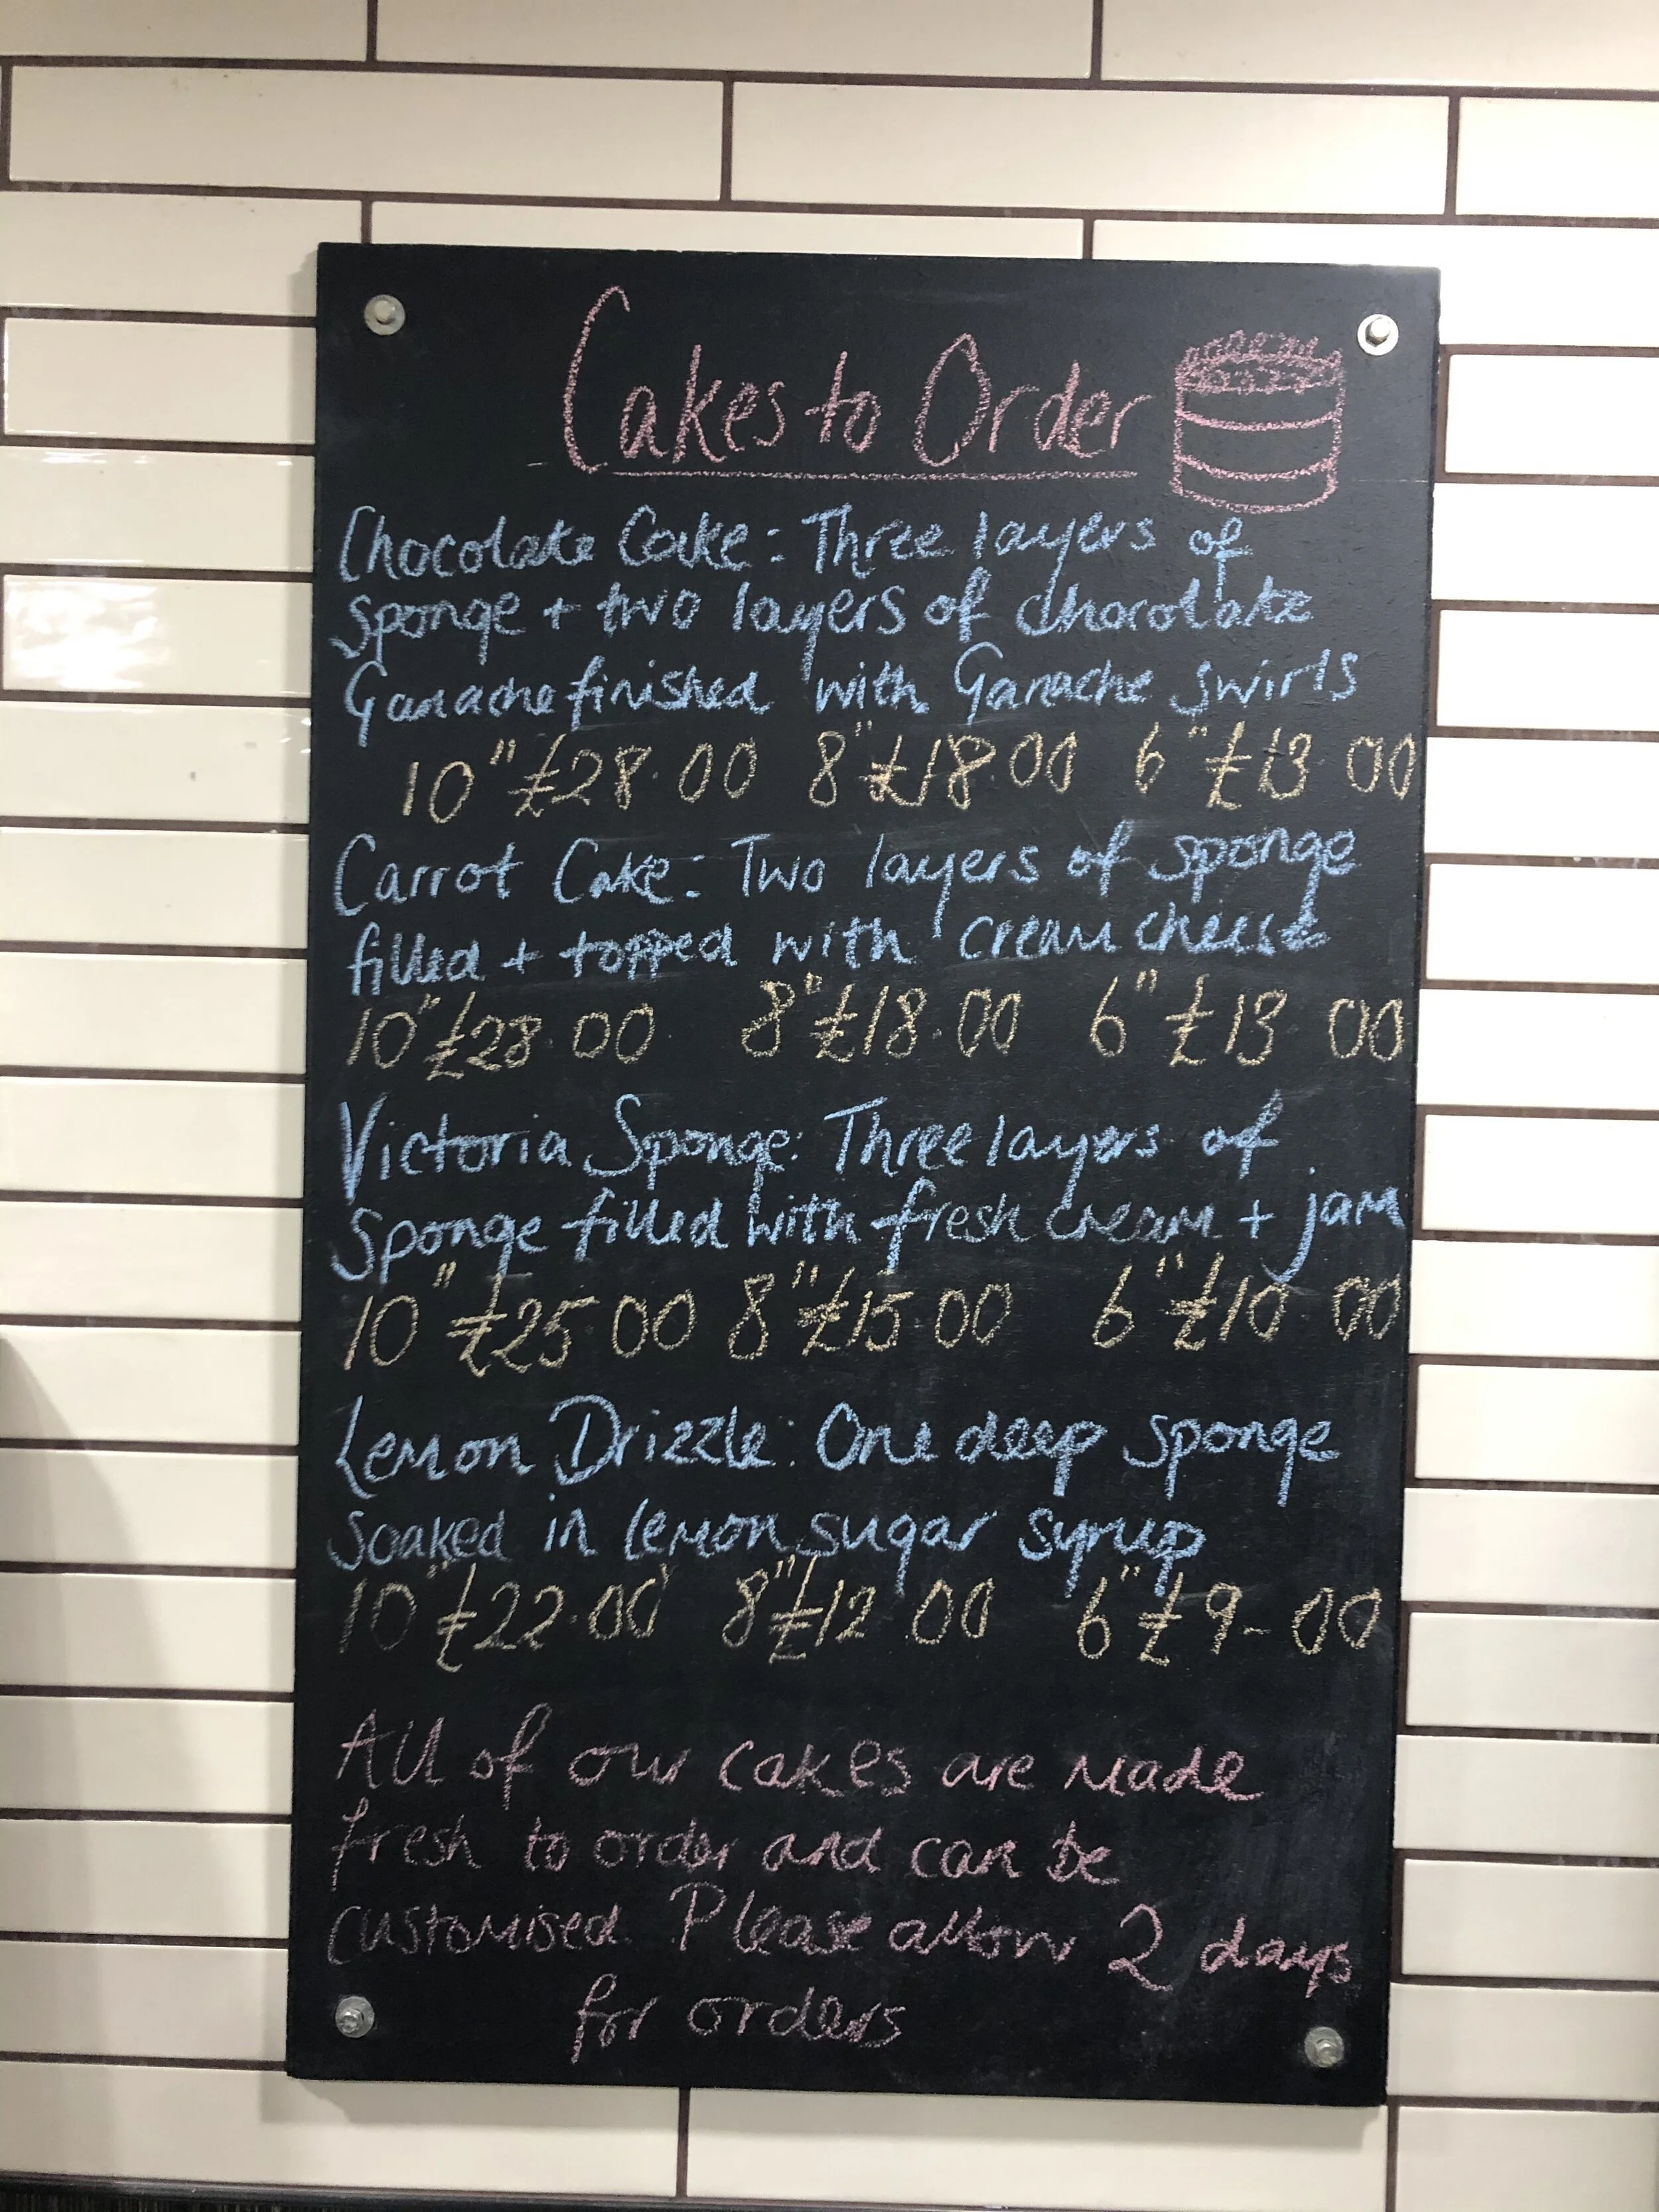 Cakes to Order
Chocolate Cake: Three layers of
sponge + two layers of chocolate
Ganache finished with Ganache swirls
10" £28.00 8" £18.00 6" £13 00
Carrot Cake: Two layers of sponge
filled + topped with cream cheese
10" £28 00 8" £18.00 6" £13 00
Victoria Sponge: Three layers of
Sponge filled with fresh cream + jam
10" £25.00 8" £15.00 6" £10.00
Lemon Drizzle: One deep sponge
soaked in lemon sugar syrup
10" £22.00 8" £12.00 6" £9-00
All of our cakes are made
fresh to order and can be
customised. Please allow 2 days
for orders